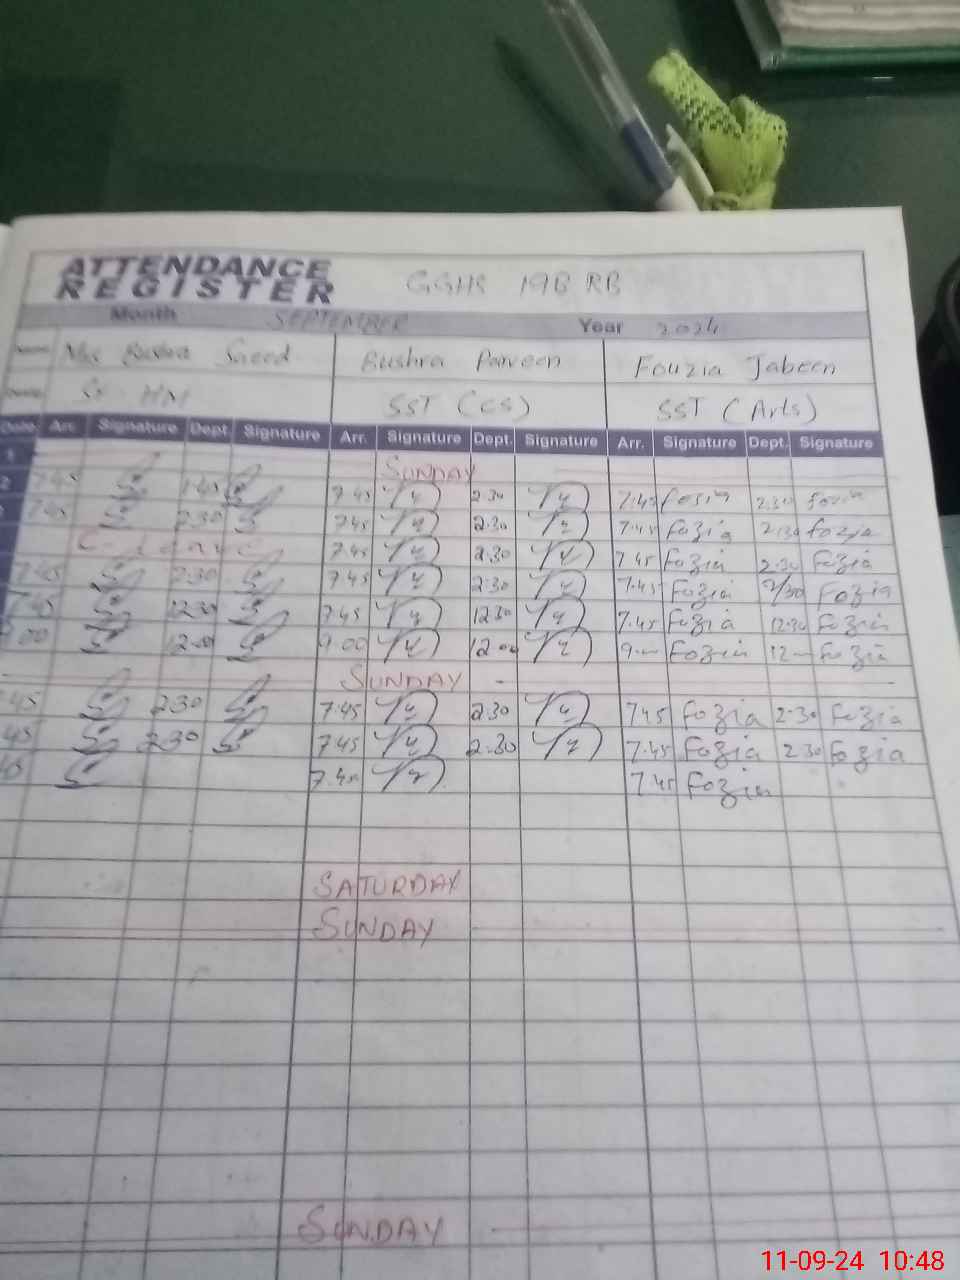 ATTENDANCE REGISTER GGHS 19B RB
Month SEPTEMBER Year 2024
Bushra Saeed Bushra Parveen Fouzia Jabeen
Sr HM SST (CS) SST (Arts)
Date Arr. Signature Dept Signature Arr. Signature Dept. Signature Arr. Signature Dept. Signature
1 SUNDAY
2 7.45 1.45 7.45 2.30 7.45 Fozia 2.30 Fozia
7.45 2.30 7.45 2.30 7.45 Fozia 2.30 Fozia
C. Leave 7.45 2.30 7.45 Fozia 2.30 Fozia
7.45 2.30 7.45 2.30 7.45 Fozia 2/30 Fozia
7.45 12.30 7.45 12.30 7.45 Fozia 12.30 Fozia
9.00 12.00 9.00 12.00 9.00 Fozia 12.00 Fozia
SUNDAY
7.45 2.30 7.45 2.30 7.45 Fozia 2.30 Fozia
7.45 2.30 7.45 2.30 7.45 Fozia 2.30 Fozia
7.45 7.45 Fozia
SATURDAY
SUNDAY
SUNDAY
11-09-24 10:48